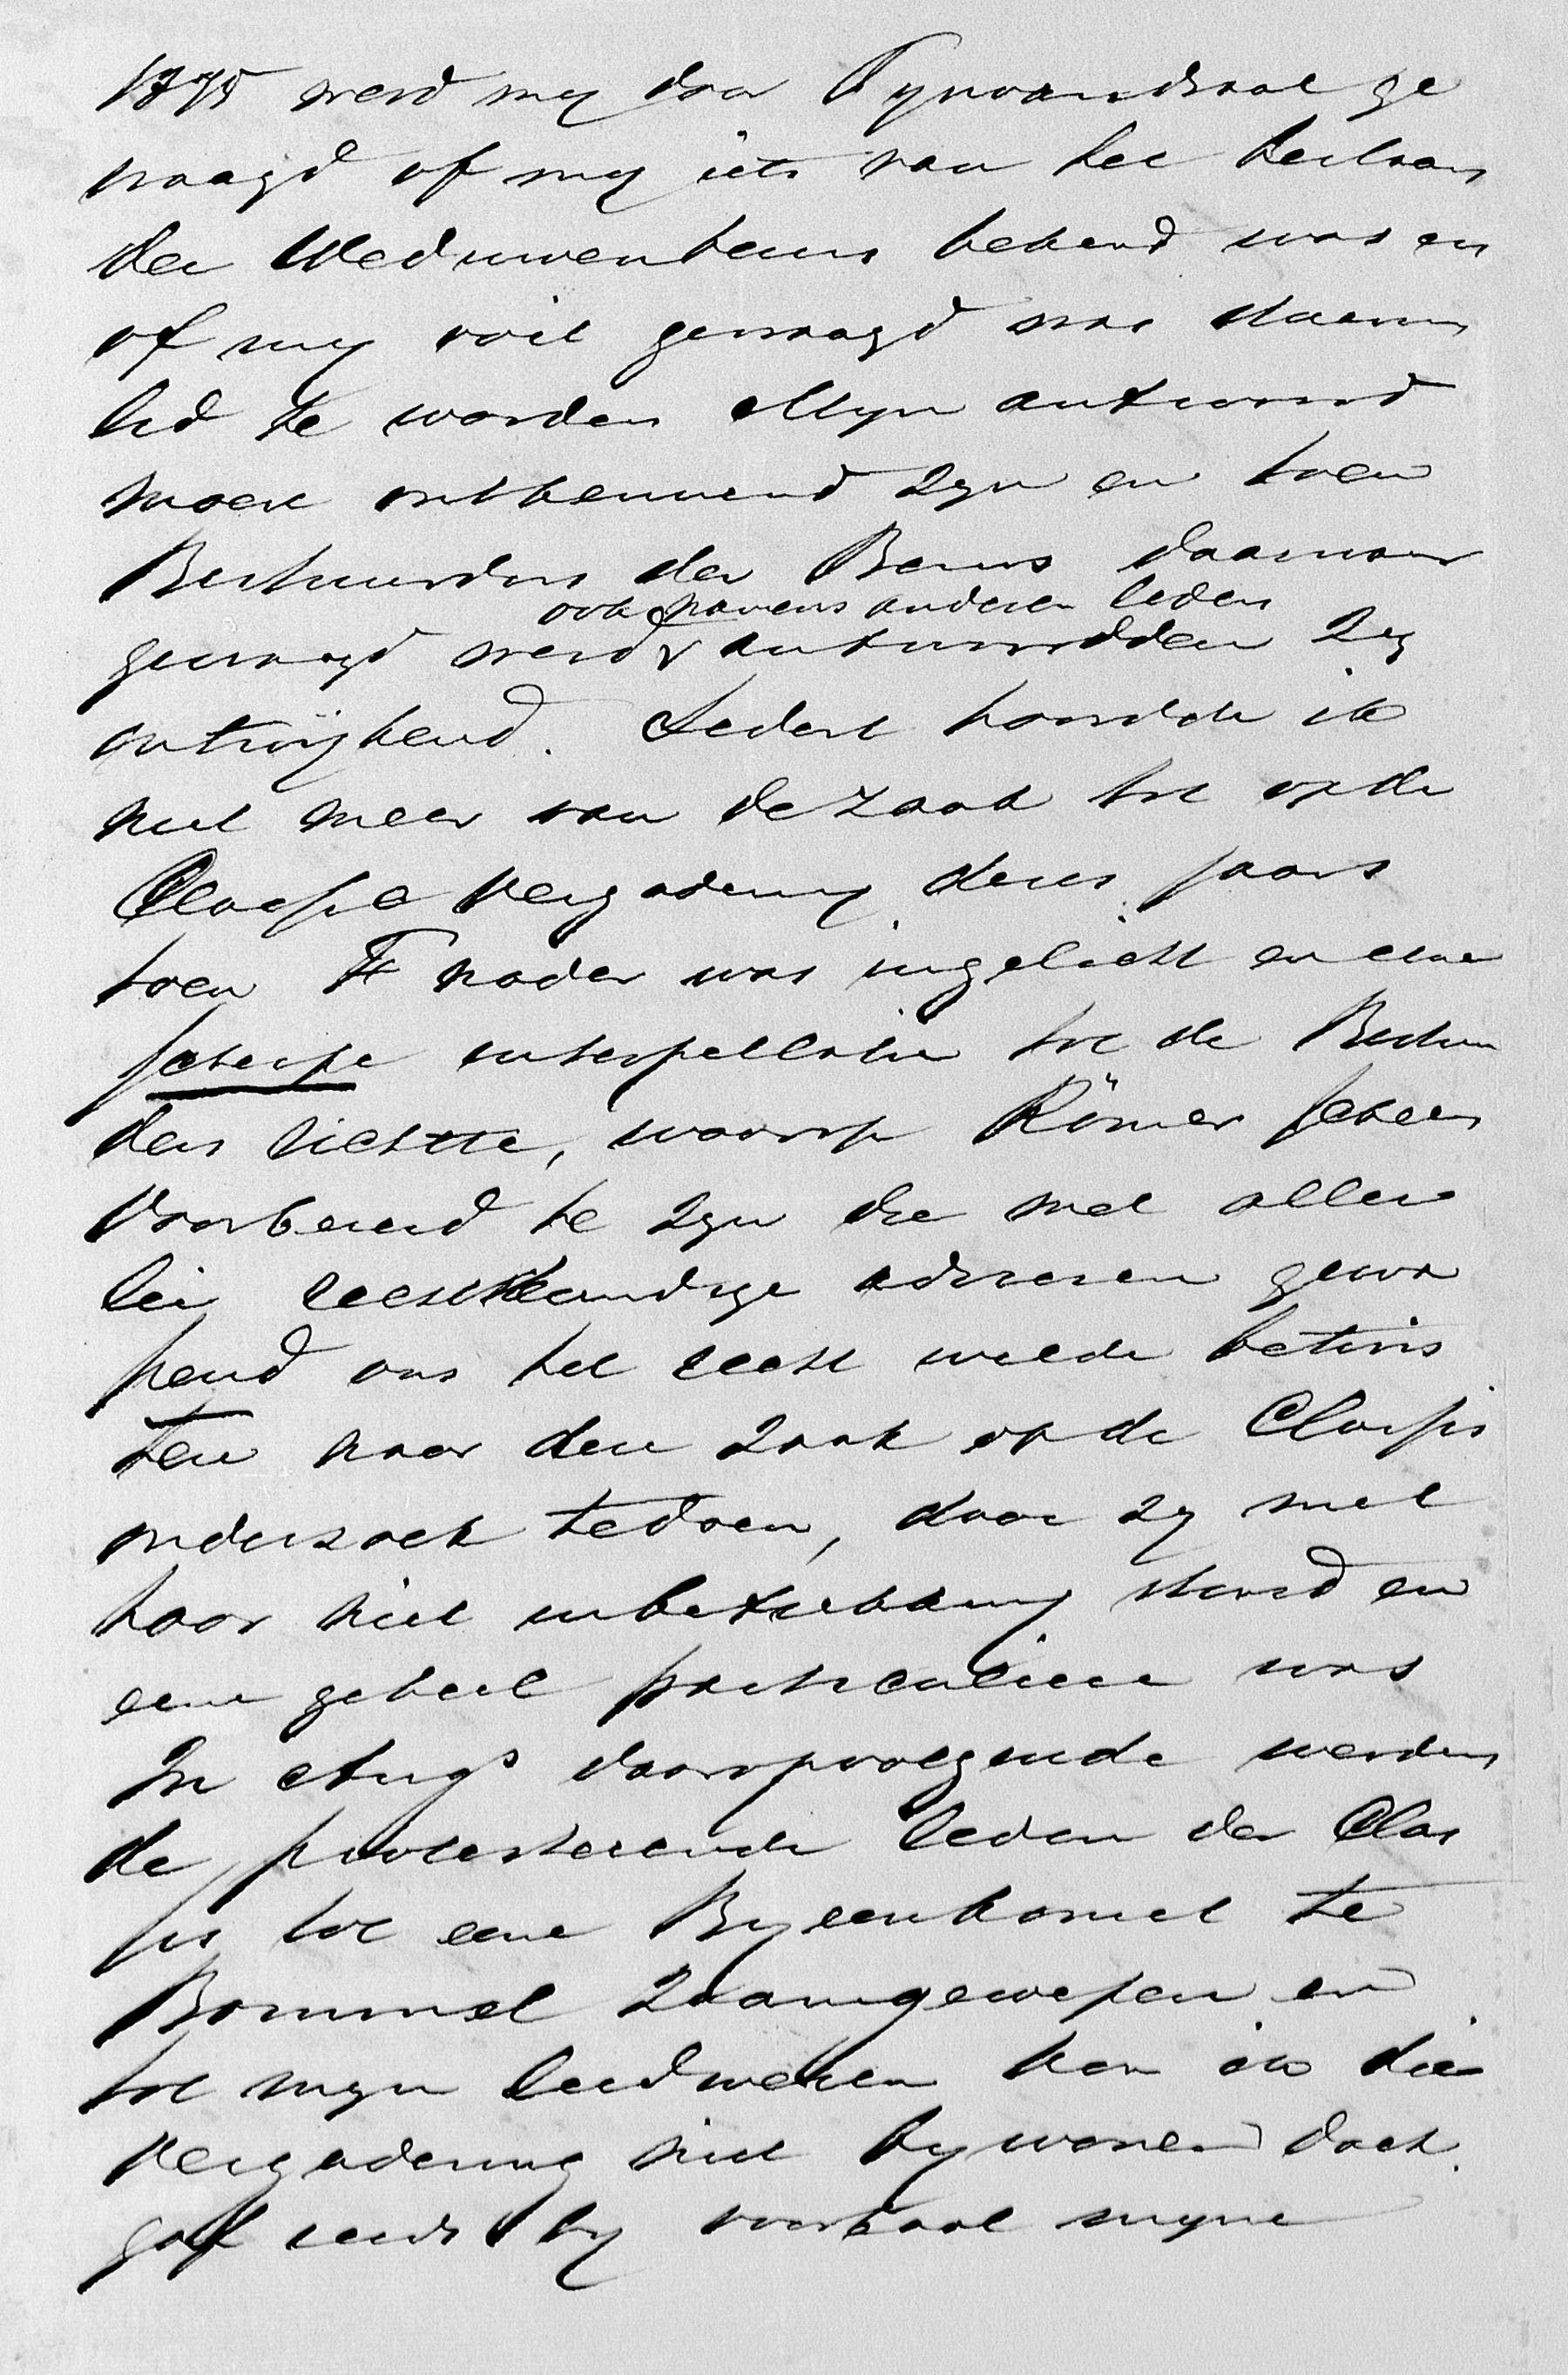 1875 werd my door Tynvandraat ge
vraagd of my iets van het bestaan
der Weduwenbeurs bekend was en
of my ooit gevraagd was daarvan
lid te worden Myn antwoord
moest ontkennend zyn en toen
Bestuurders der Beurs daarnaar
ook navens anderen leden
gevraagd werd antwoordden zy
ontwijkend. Sedert hoorde ik
niet meer van de zaak tot op de
Classicale Vergadering dezes jaars
toen T nader was ingelicht en eene
scherpe interpellatie tot de Bestuur
ders richtte, waarop Römer scheen
voorbereid te zyn die met aller
lei rechtkundige adviesen gewa
pend ons het recht wilde betwis
ten naar deze zaak op de Classis
onderzoek te doen, daar zy met
haar niet in betrekking stond en
eene geheel particuliere was
In Augs daaropvolgende werden
de protesterende leden der Clas
sis tot eene Byeenkomst te
Bommel zaamgeroepen en
tot myn leedwezen kon ik die
Vergadering niet bywonen doch
gaf reeds by voorbaat myne